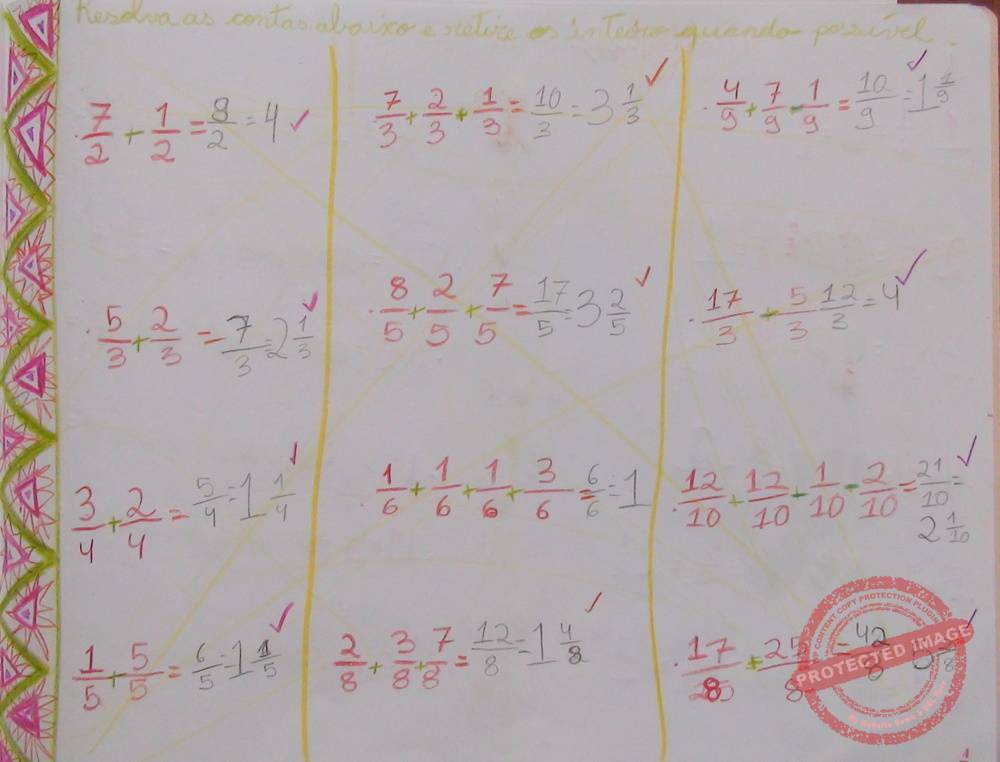 Resolva as contas abaixo e retire os inteiro quando possível.
7/2 + 1/2 = 8/2 = 4 ✓
7/3 + 2/3 + 1/3 = 10/3 = 3 1/3 ✓
4/9 + 7/9 - 1/9 = 10/9 = 1 1/9 ✓
5/3 + 2/3 = 7/3 = 2 1/3 ✓
8/5 + 2/5 + 7/5 = 17/5 = 3 2/5 ✓
17/3 - 5/3 12/3 = 4 ✓
3/4 + 2/4 = 5/4 = 1 1/4 ✓
1/6 + 1/6 + 1/6 + 3/6 = 6/6 = 1
12/10 + 12/10 - 1/10 - 2/10 = 21/10 =
2 1/10 ✓
1/5 + 5/5 = 6/5 = 1 1/5 ✓
2/8 + 3/8 + 7/8 = 12/8 = 1 4/8 ✓
17/8 + 25/8 = 42/8
WP CONTENT COPY PROTECTION PLUGIN
PROTECTED IMAGE